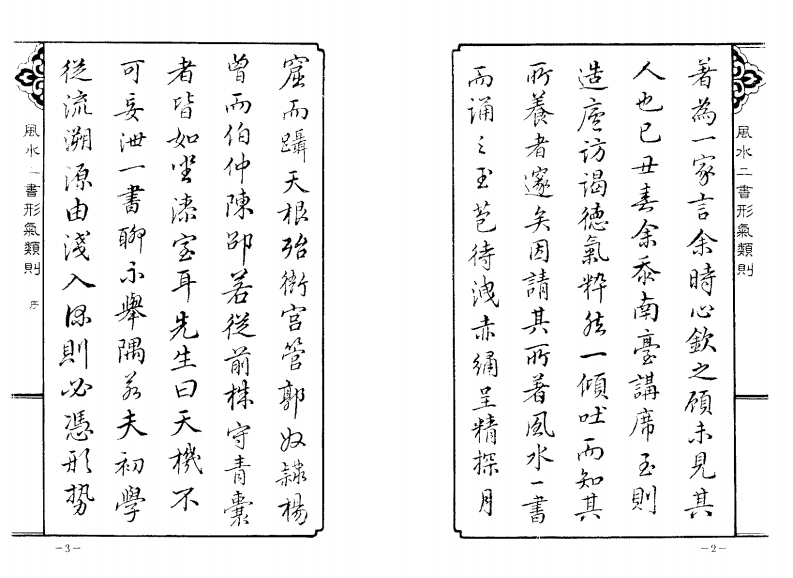 風水二書形氣類則
著為一家言余時心欽之顧未見其
人也己丑春余忝南臺講席至則
造廬訪謁德氣粹然一傾吐而知其
所養者邃矣因請其所著風水一書
而誦之玉苞待洩赤繩呈精探月
-2-
窟而躡天根殆衙官管郭奴隸楊
曾而伯仲陳邵若從前株守青囊
者皆如坐漆室耳先生曰天機不
可妄泄一書聊示舉隅若夫初學
從流溯源由淺入深則必憑形勢
風水一書形氣類則
序
-3-